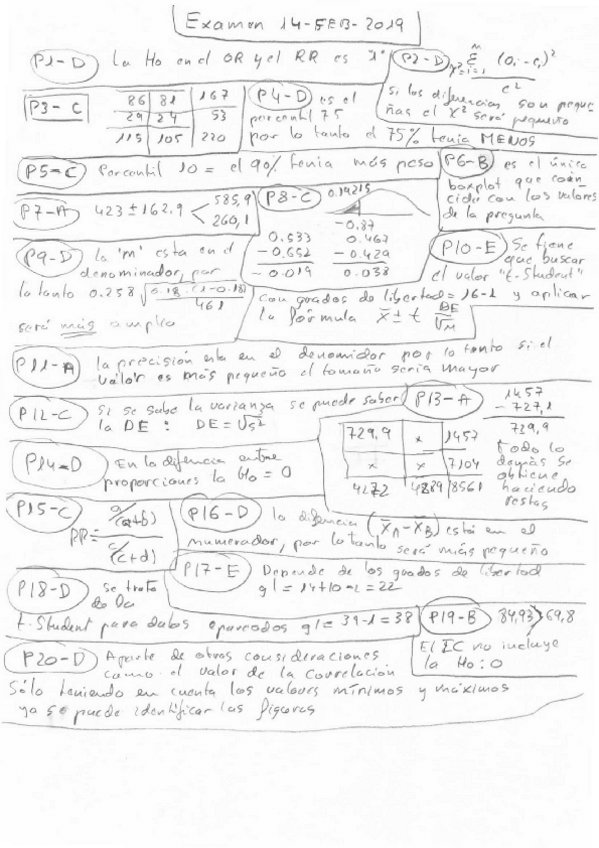 Examen 14-FEB-2019
P1-D La Ho en el OR y el RR es "1"
P2-D χ² = Σ (Oi - ei)²
i=1
e²
si las diferencias son peque
ñas el X² será pequeño
P3-C
86 81 167
29 24 53
115 105 220
P4-D es el
percentil 75
por lo tanto el 75% tenia MENOS
P5-C Percentil 10 = el 90% tenia más peso
P6-B es el único
boxplot que coin
cide con los valores
de la pregunta
P7-A 423 ± 162,9 < 585,9
260,1
P8-C 0.19215
-0.87
0.533 0.467
0.652 -0.429
-0.019 0.038
P9-D la 'm' esta en el
denominador, por
lo tanto 0.258 √0.18·(1-0.18)
461
será más amplio
P10-E Se tiene
que buscar
el valor "t-Student"
con grados de libertad = 16-1 y aplicar
la fórmula x̄ ± t DE
√m
P11-A la precisión esta en el denomidor por lo tanto si el
valor es más pequeño el tamaño seria mayor
P12-C Si se sabe la varianza se puede saber
la DE : DE = √s²
P13-A 1457
- 727,1
729,9
729.9 x 1457
x x 7104
4272 4289 8561
Todo lo
demás se
obtiene
haciendo
restas
P14-D En la difencia entre
proporciones la Ho = 0
P15-C RR = a/(a+b)
c/(c+d)
P16-D la difencia (x̄A - x̄B) está en el
numerador, por lo tanto será más pequeño
P17-E Depende de los grados de libertad
gl = 14+10-2 = 22
P18-D se trata
de la
t-Student para datos apareados gl = 39-1 = 38
P19-B 84,93 > 69,8
El IC no incluye
la Ho: 0
P20-D Aparte de otras consideraciones
como el valor de la correlación
Sólo teniendo en cuenta los valores mínimos y máximos
ya se puede identificar las figuras